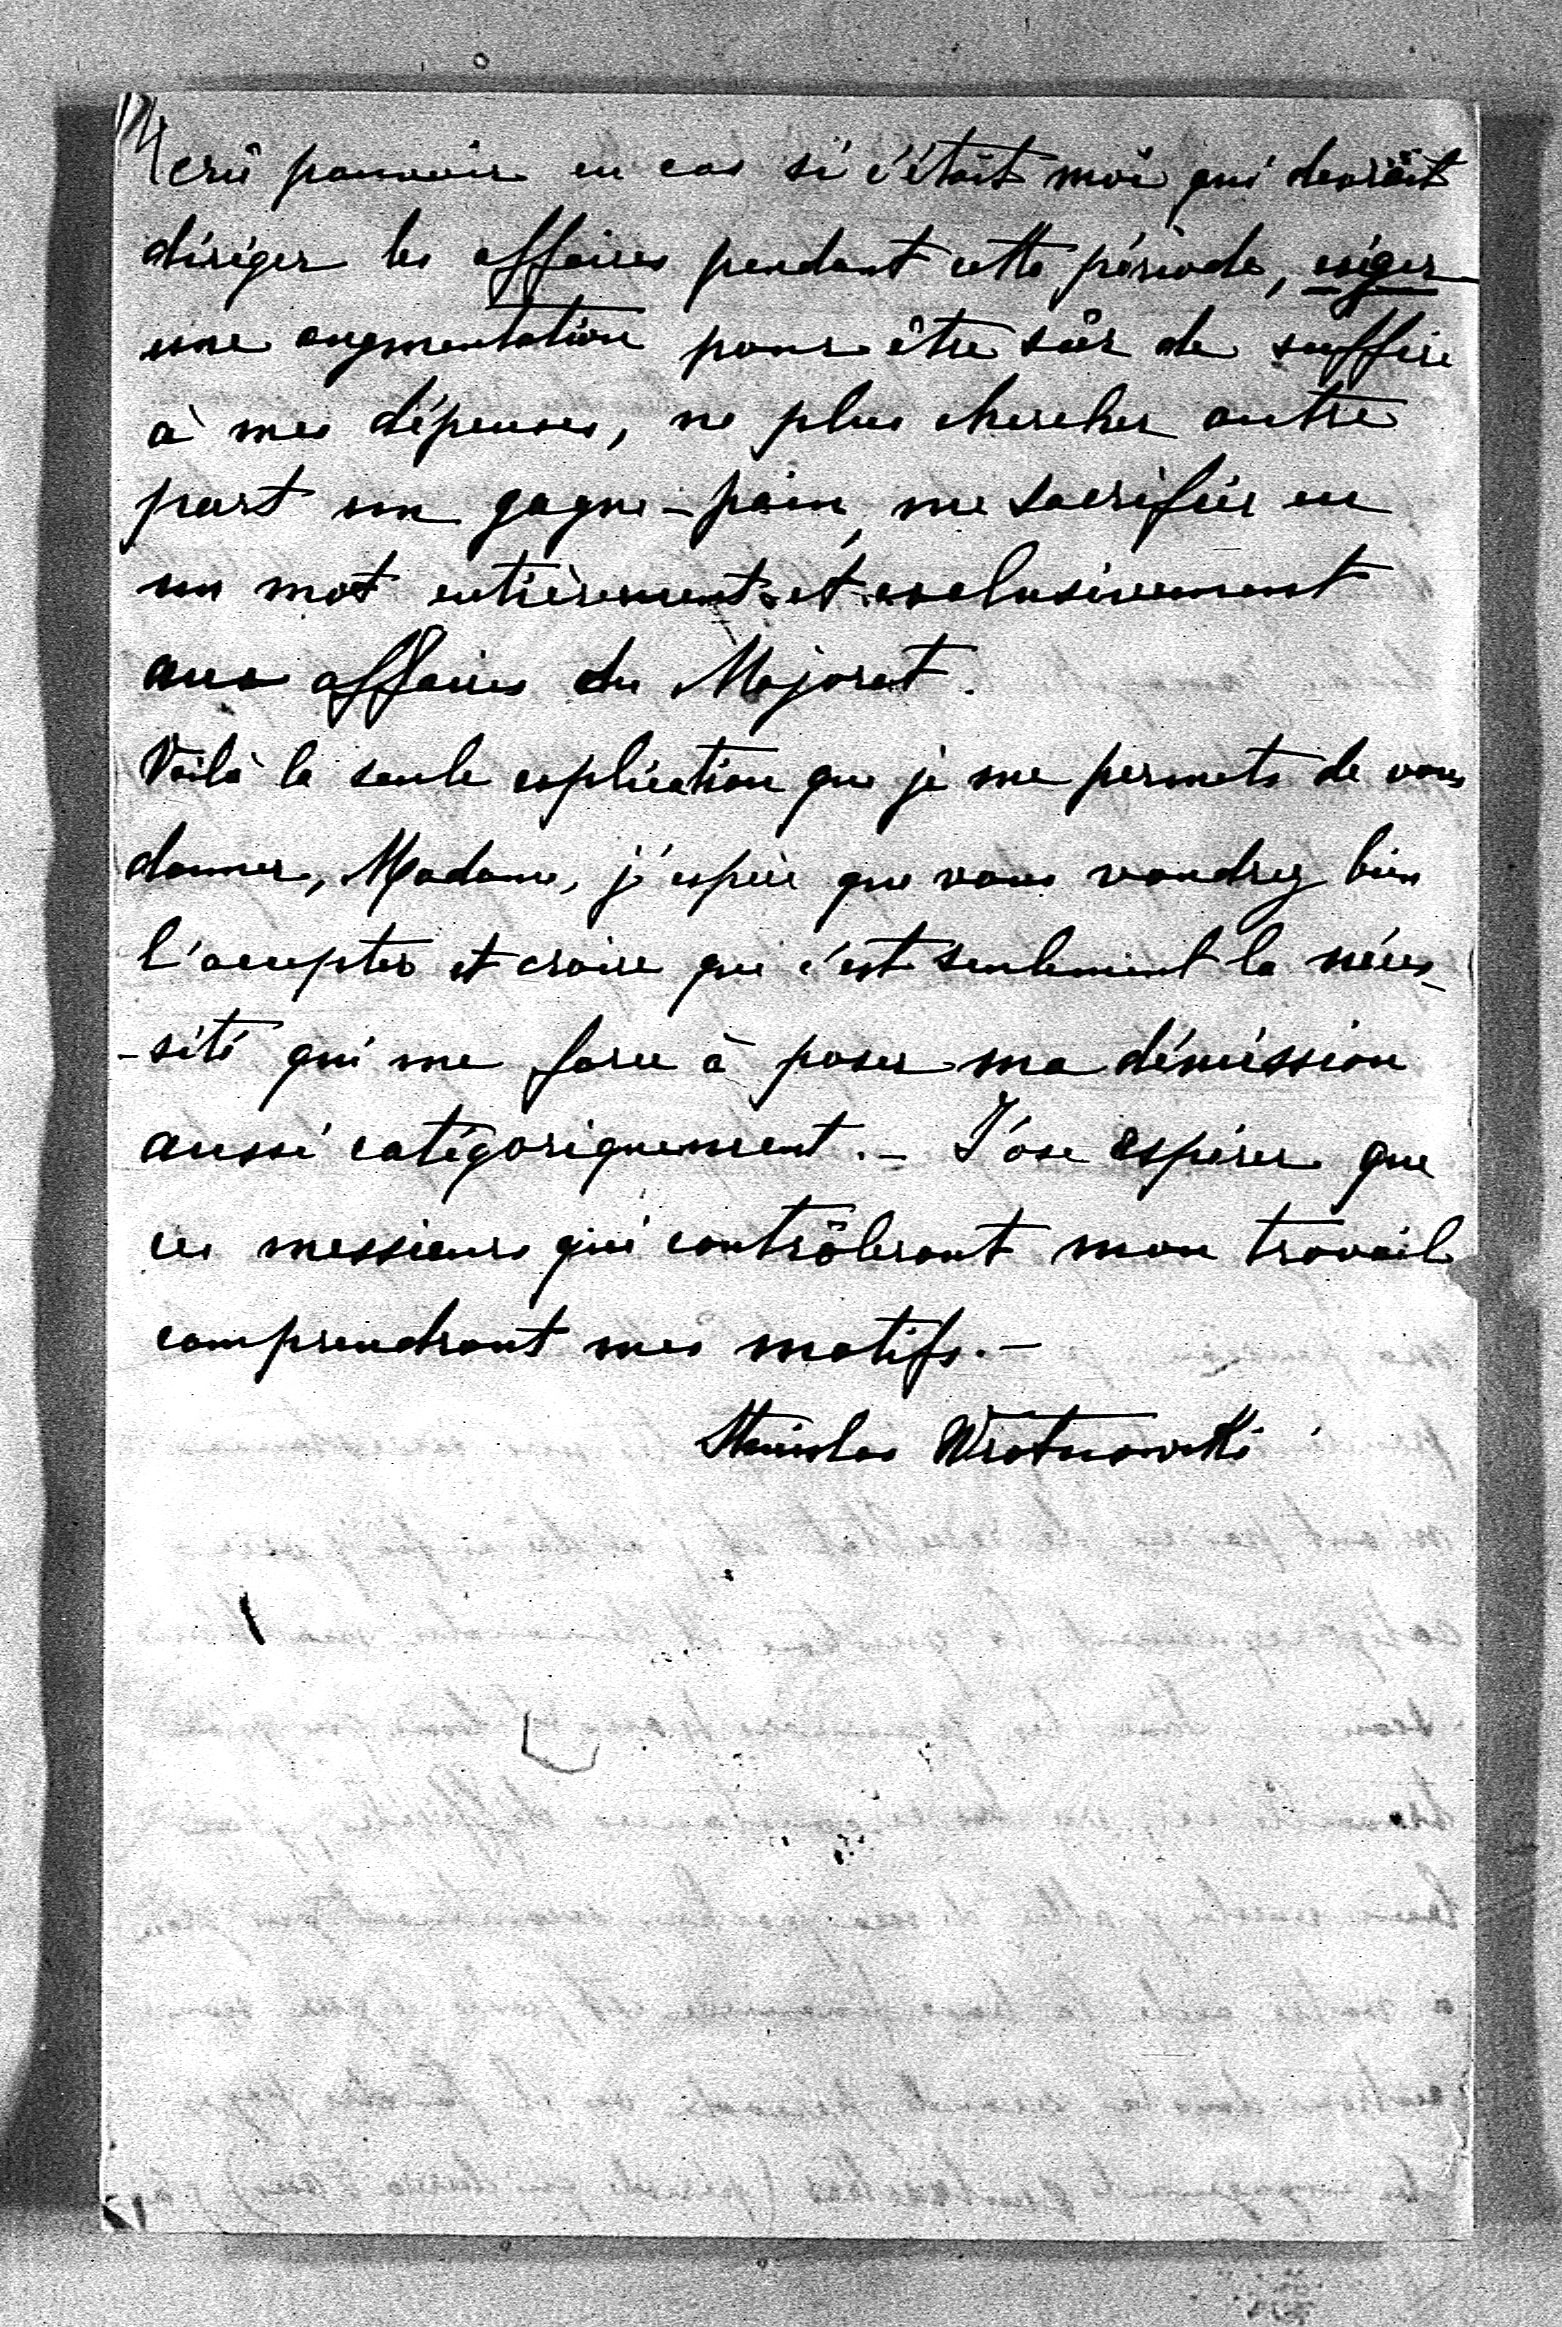 crû pouvoir en cas si c'était moi qui devrait
diriger les affaires pendant cette période, exiger
une augmentation pour être sûr de suffire
à mes dépenses, ne plus chercher autre
part un gagne-pain, me sacrifier en
un mot entièrement et exclusivement
aux affaires du Majorat.
Voilà la seule explication que je me permets de vous
donner, Madame, j'espère que vous voudrez bien
l'accepter et croire que c'est seulement la néces-
-sité qui me force à poser ma démission
aussi catégoriquement. - J'ose espérer que
ces messieurs qui contrôleront mon travail
comprendront mes motifs. -
Stanislas Wrotnowski